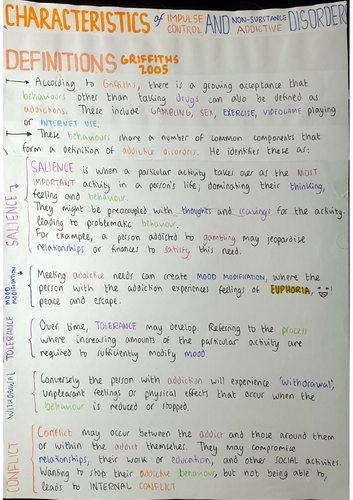 CHARACTERISTICS of IMPULSE CONTROL AND NON-SUBSTANCE ADDICTIVE DISORDER
DEFINITIONS GRIFFITHS 2005
According to Griffiths, there is a growing acceptance that
behaviours other than taking drugs can also be defined as
addictions. These include GAMBLING, SEX, EXERCISE, VIDEOGAME playing
or INTERNET USE.
These behaviours share a number of common components that
form a definition of addictive disorders. He identifies these as:
SALIENCE
SALIENCE is when a particular activity takes over as the MOST
IMPORTANT activity in a person's life; dominating their thinking,
feeling and behaviour.
They might be preoccupied with thoughts and cravings for the activity
leading to problematic behaviour.
For example, a person addicted to gambling may jeopardise
relationships or finances to satisfy this need.
MOOD MODIFICATION
Meeting addictive needs can create MOOD MODIFICATION, where the
person with the addiction experiences feelings of EUPHORIA,
peace and escape.
TOLERANCE
Over time, TOLERANCE may develop. Referring to the process
where increasing amounts of the particular activity are
required to sufficiently modify mood.
WITHDRAWAL
Conversely the person with addiction will experience 'withdrawal',
unpleasant feelings or physical effects that occur when the
behaviour is reduced or stopped.
CONFLICT
Conflict may occur between the addict and those around them
or within the addict themselves. They may compromise
relationships, their work or education, and other social activities.
Wanting to stop their addictive behaviour, but not being able to,
leads to INTERNAL CONFLICT